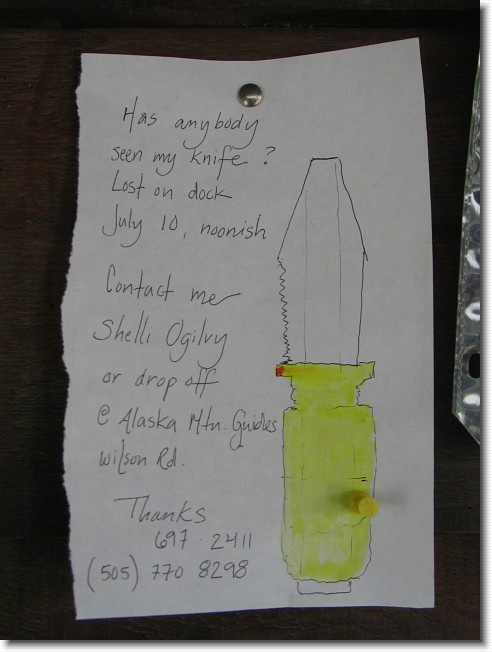 Has anybody
seen my knife?
Lost on dock
July 10, noonish
Contact me
Shelli Ogilvy
or drop off
@ Alaska Mtn. Guides
Wilson Rd.
Thanks
697-2411
(505) 770 8298